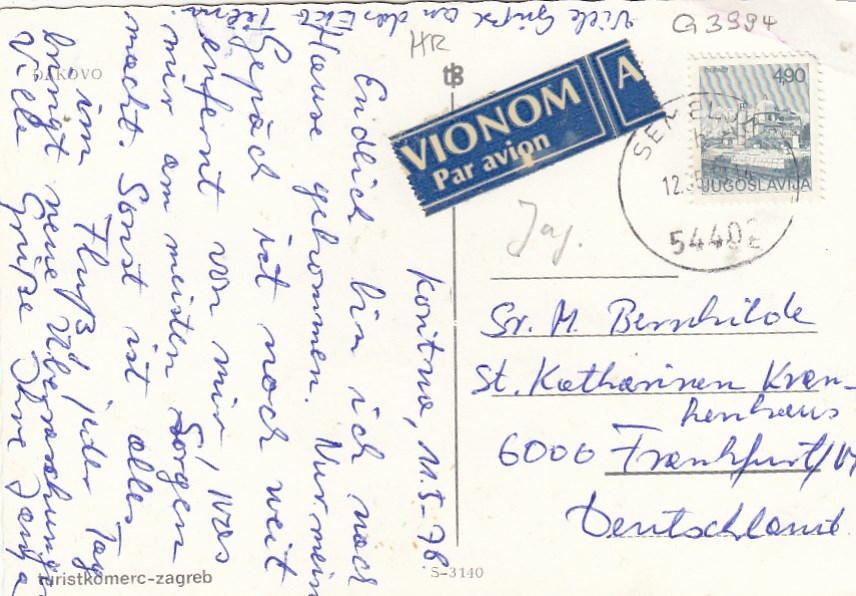 Koritna, 11.5-78
Endlich bin ich nach
Hause gekommen. Nur mein
Gepäck ist noch weit
enfernt von mir, was
mir am meisten Sorgen
macht. Sonst ist alles
im Fluß, jeder Tag
bringt neue Überraschungen
Viele Grüße Ihre
Viele Grüße an das
G3994
HR
ĐAKOVO
tB
AVIONOM
Par avion
A
4,90
JUGOSLAVIJA
12.
54402
Jug.
Sr. M. Bernhilde
St. Katharinen Kran-
kenhaus
6000 Frankfurt/M
Deutschland
turistkomerc-zagreb
S-3140